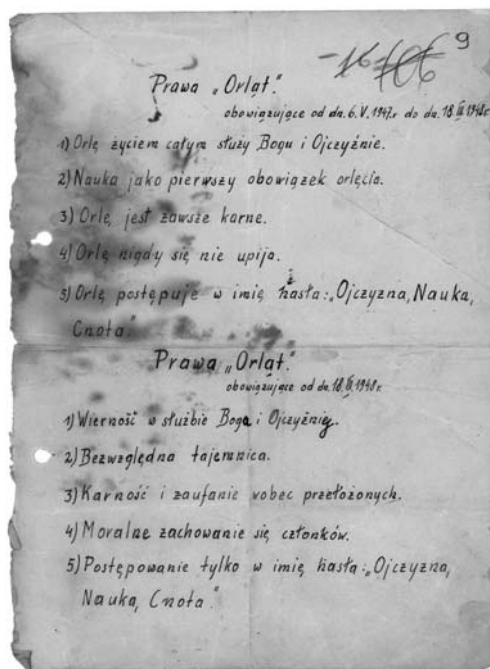 9
-16
106
Prawa „Orląt."
obowiązujące od dn. 6. V. 1947.r do dn. 18. II 1948r
1) Orlę życiem całym służy Bogu i Ojczyźnie.
2) Nauka jako pierwszy obowiązek orlęcia.
3) Orlę jest zawsze karne.
4) Orlę nigdy się nie upija.
5) Orlę postępuje w imię hasła: „Ojczyzna, Nauka,
Cnota."
Prawa „Orląt."
obowiązujące od dn. 18. II. 1948r.
1) Wierność w służbie Boga i Ojczyźnie.
2) Bezwzględna tajemnica.
3) Karność i zaufanie wobec przełożonych.
4) Moralne zachowanie się członków.
5) Postępowanie tylko w imię hasła: „Ojczyzna,
Nauka, Cnota."